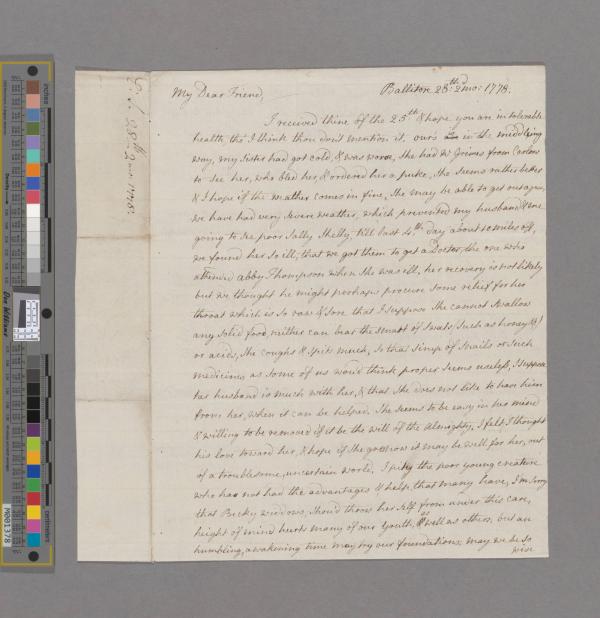 My Dear Friend,
Balliton 28th: 2mo: 1778.
I received thine of the 25th & hope you are in tolerable
health, tho' I think thou don't mention it, our's are in the middling
way, my Sister had got cold, & was worse, She had Dr Grimes from Carlow
to See her, who bled her, & ordered her a puke, She Seems rather better
& I hope if the weather comes in fine, She may be able to get out again,
we have had very Severe weather, which prevented my husband & me
going to See poor Sally Shelly, till last 4th day about 10 miles off,
we found her So ill, that we got them to get a Doctor, the one who
attended Abby Thompson when She was ill, her recovery is not likely
but we thought he might perhaps procure Some relief for her
throat which is So raw & Sore that I Suppose She cannot Swallow
any Solid food, neither can bear the Smart of Sweets Such as honey &c
or acids, She coughs & Spits much, So that Sirup of Snails or Such
medicines as Some of us would think proper Seems useless, I Suppose
her husband is much with her, & that She does not like to have him
from her, when it can be helped. She Seems to be easy in her mind
& willing to be removed if it be the will of the Almighty, I felt, I thought
his love toward her, & hope if She goes now it may be well for her, out
of a troublesome, uncertain world. I pity the poor young creature
who has not had the advantages of help, that many have, I'm Sorry
that Becky widdows, Should throw her Self from under this care,
height of mind hurts many of our Youth, as well as others, but an
humbling, awakening time may try our foundations may we be So
wise
28th 2mo: 1778:
inches
centimeters
Don Williams
M001378